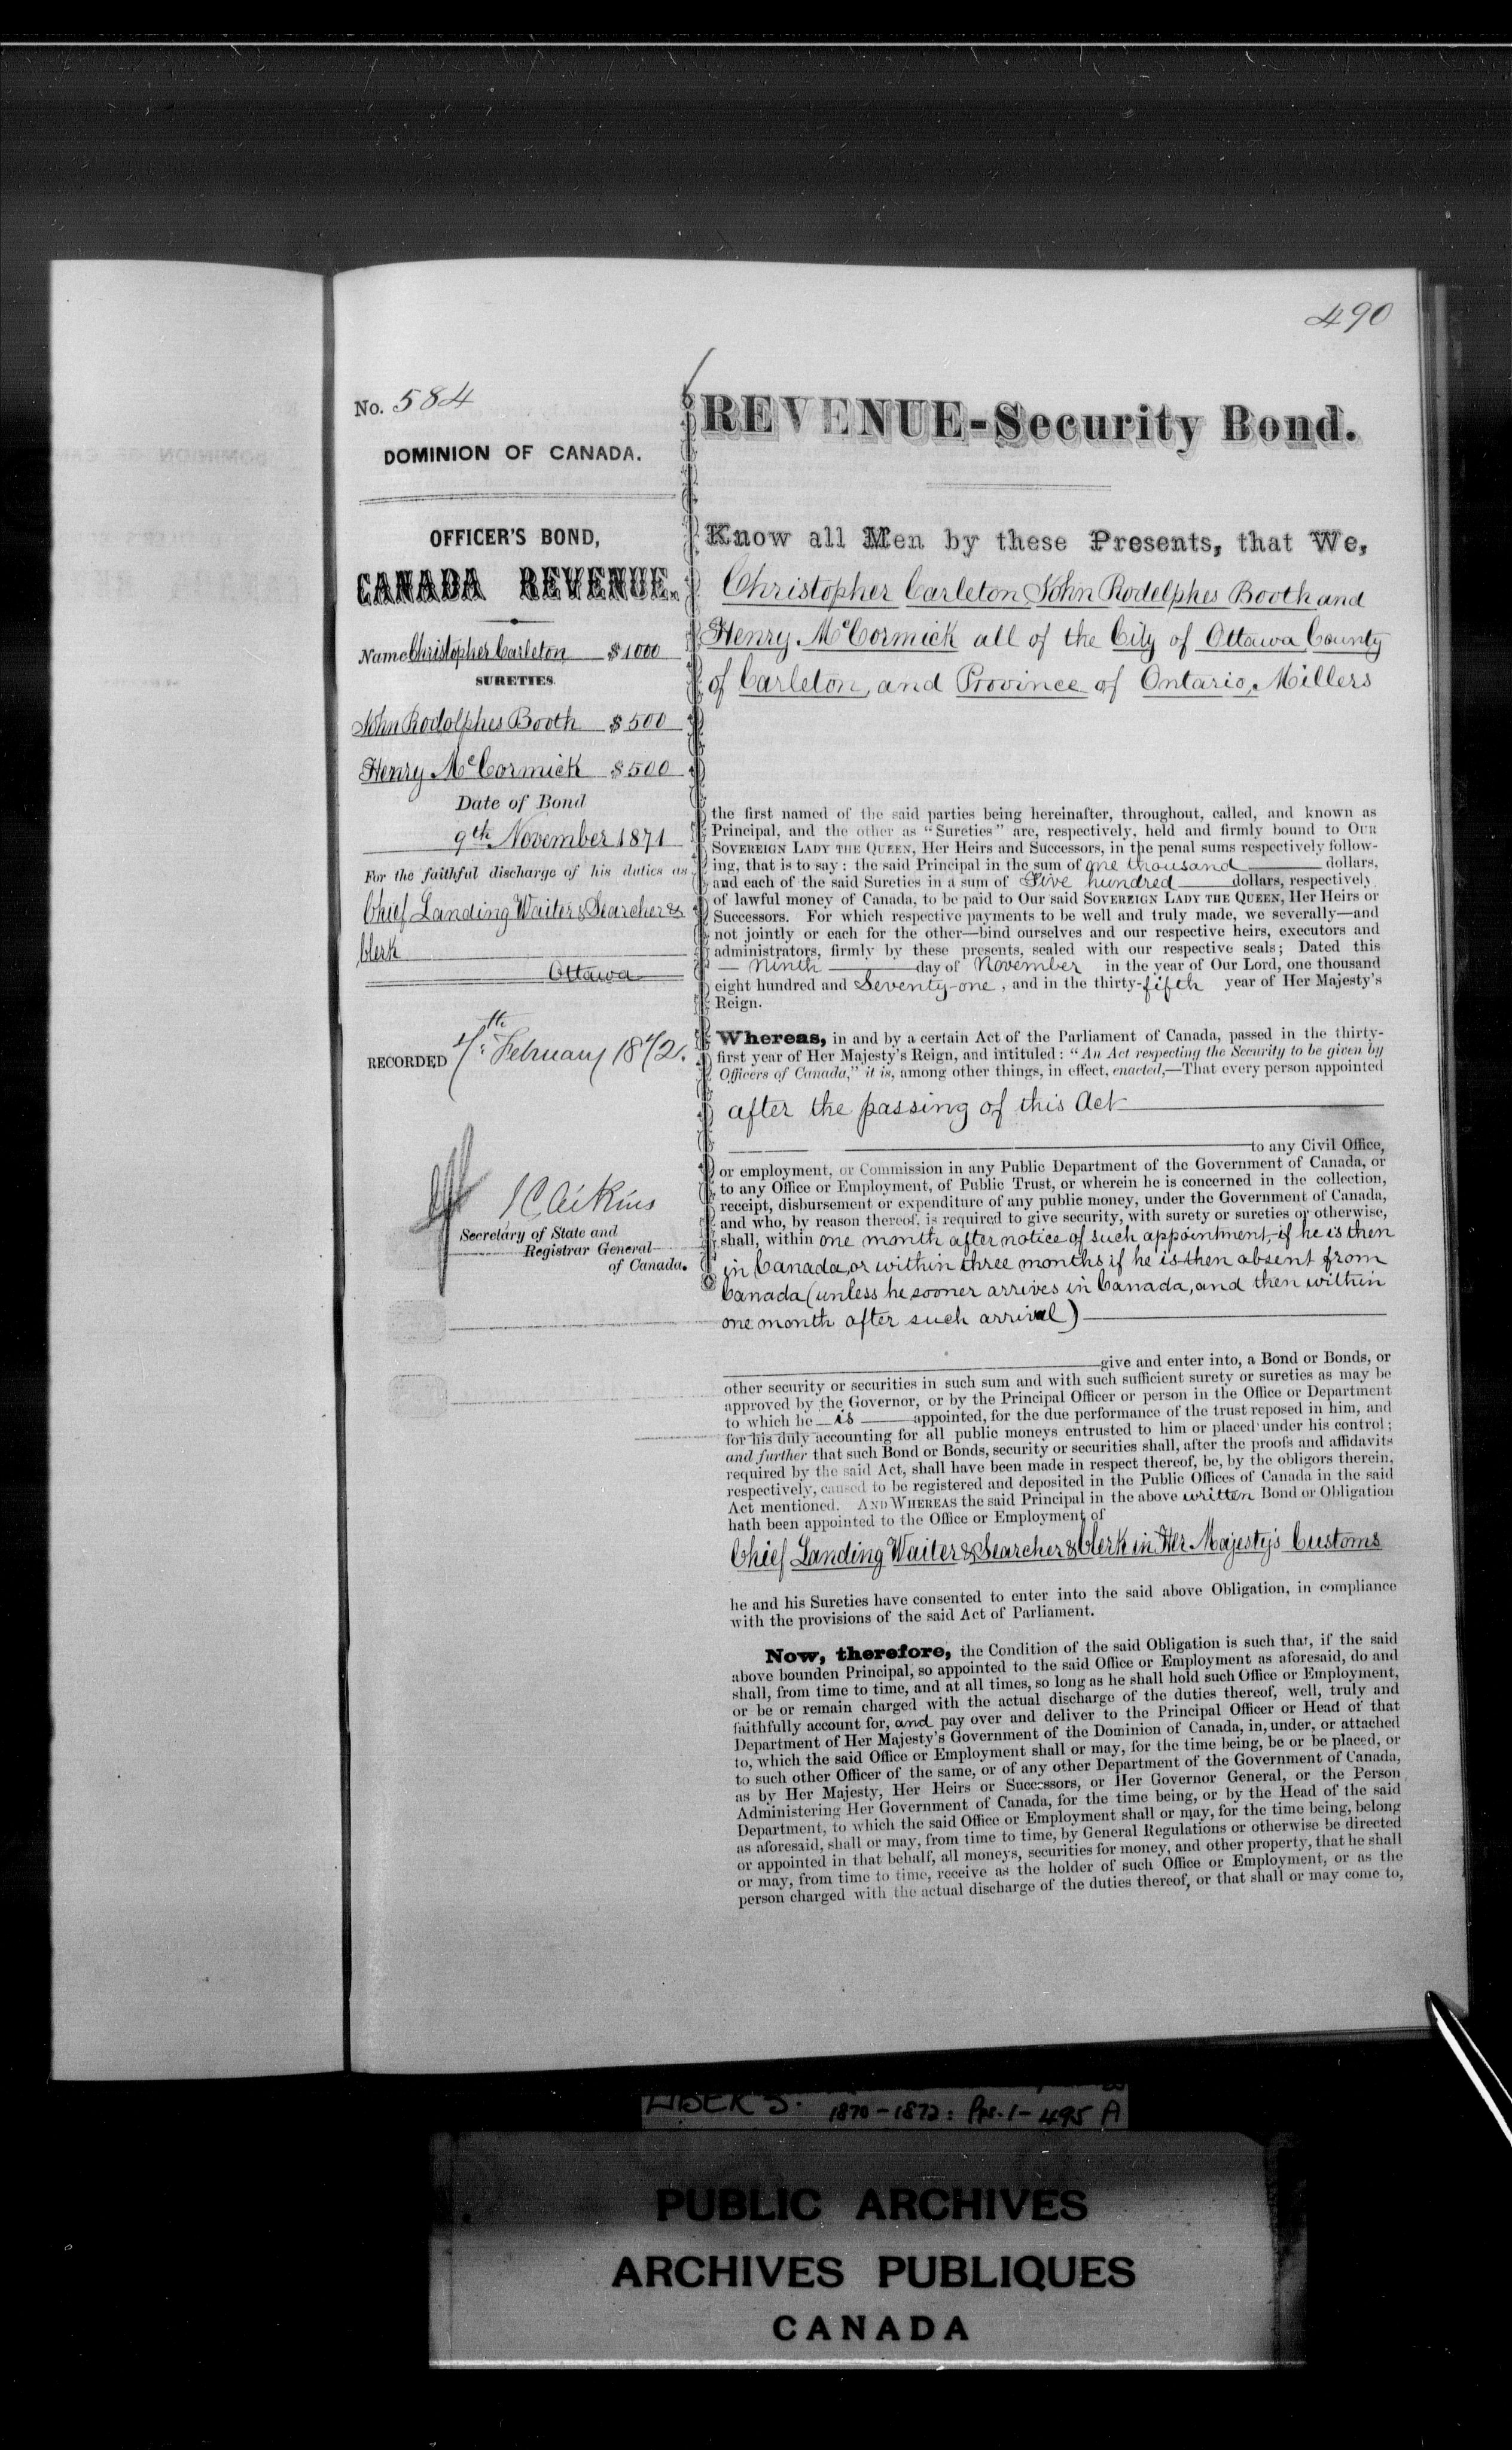 490
No. 584
DOMINION OF CANADA.
OFFICER'S BOND,
CANADA REVENUE.
Name Christopher Carleton $1000
SURETIES.
John Rodolphes Booth $500
Henry McCormick $500
Date of Bond
9th November 1871
For the faithful discharge of his duties as
Chief Landing Waiter & Searcher &
Clerk
Ottawa
RECORDED February 1872.
J C Aikins
Secretary of State and
Registrar General
of Canada.
REVENUE-Security Bond.
Know all Men by these Presents, that We,
Christopher Carleton, John Rodolphes Booth and
Henry McCormick all of the City of Ottawa County
of Carleton, and Province of Ontario, Millers
the first named of the said parties being hereinafter, throughout, called, and known as
Principal, and the other as "Sureties" are, respectively, held and firmly bound to OUR
SOVEREIGN LADY THE QUEEN, Her Heirs and Successors, in the penal sums respectively follow-
ing, that is to say: the said Principal in the sum of one thousand dollars,
and each of the said Sureties in a sum of Five hundred dollars, respectively
of lawful money of Canada, to be paid to Our said SOVEREIGN LADY THE QUEEN, Her Heirs or
Successors. For which respective payments to be well and truly made, we severally—and
not jointly or each for the other—bind ourselves and our respective heirs, executors and
administrators, firmly by these presents, sealed with our respective seals; Dated this
— Ninth — day of November in the year of Our Lord, one thousand
eight hundred and Seventy-one, and in the thirty-fifth year of Her Majesty's
Reign.
Whereas, in and by a certain Act of the Parliament of Canada, passed in the thirty-
first year of Her Majesty's Reign, and intituled: "An Act respecting the Security to be given by
Officers of Canada," it is, among other things, in effect, enacted,—That every person appointed
after the passing of this Act
to any Civil Office,
or employment, or Commission in any Public Department of the Government of Canada, or
to any Office or Employment, of Public Trust, or wherein he is concerned in the collection,
receipt, disbursement or expenditure of any public money, under the Government of Canada,
and who, by reason thereof, is required to give security, with surety or sureties or otherwise,
shall, within one month after notice of such appointment, if he is then
in Canada, or within three months if he is then absent from
Canada (unless he sooner arrives in Canada, and then within
one month after such arrival)
give and enter into, a Bond or Bonds, or
other security or securities in such sum and with such sufficient surety or sureties as may be
approved by the Governor, or by the Principal Officer or person in the Office or Department
to which he is appointed, for the due performance of the trust reposed in him, and
for his duly accounting for all public moneys entrusted to him or placed under his control;
and further that such Bond or Bonds, security or securities shall, after the proofs and affidavits
required by the said Act, shall have been made in respect thereof, be, by the obligors therein,
respectively, caused to be registered and deposited in the Public Offices of Canada in the said
Act mentioned. AND WHEREAS the said Principal in the above written Bond or Obligation
hath been appointed to the Office or Employment of
Chief Landing Waiter & Searcher & Clerk in Her Majesty's Customs
he and his Sureties have consented to enter into the said above Obligation, in compliance
with the provisions of the said Act of Parliament.
Now, therefore, the Condition of the said Obligation is such that, if the said
above bounden Principal, so appointed to the said Office or Employment as aforesaid, do and
shall, from time to time, and at all times, so long as he shall hold such Office or Employment,
or be or remain charged with the actual discharge of the duties thereof, well, truly and
faithfully account for, and pay over and deliver to the Principal Officer or Head of that
Department of Her Majesty's Government of the Dominion of Canada, in, under, or attached
to, which the said Office or Employment shall or may, for the time being, be or be placed, or
to such other Officer of the same, or of any other Department of the Government of Canada,
as by Her Majesty, Her Heirs or Successors, or Her Governor General, or the Person
Administering Her Government of Canada, for the time being, or by the Head of the said
Department, to which the said Office or Employment shall or may, for the time being, belong
as aforesaid, shall or may, from time to time, by General Regulations or otherwise be directed
or appointed in that behalf, all moneys, securities for money, and other property, that he shall
or may, from time to time, receive as the holder of such Office or Employment, or as the
person charged with the actual discharge of the duties thereof, or that shall or may come to,
LIBER 3. 1870-1872: Pps. 1-495 A
PUBLIC ARCHIVES
ARCHIVES PUBLIQUES
CANADA